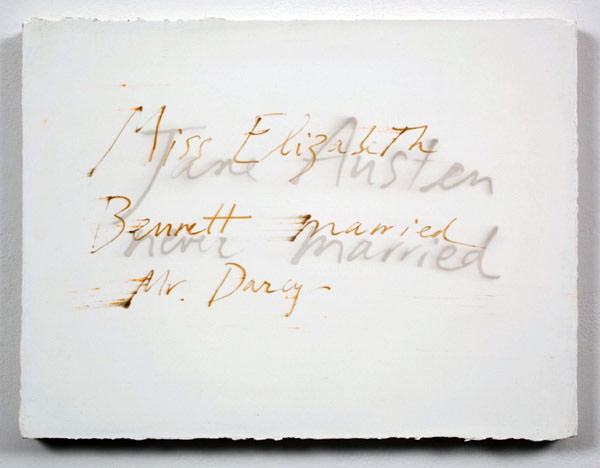 Miss Elizabeth
Jane Austen
Bennett married
never married
Mr. Darcy